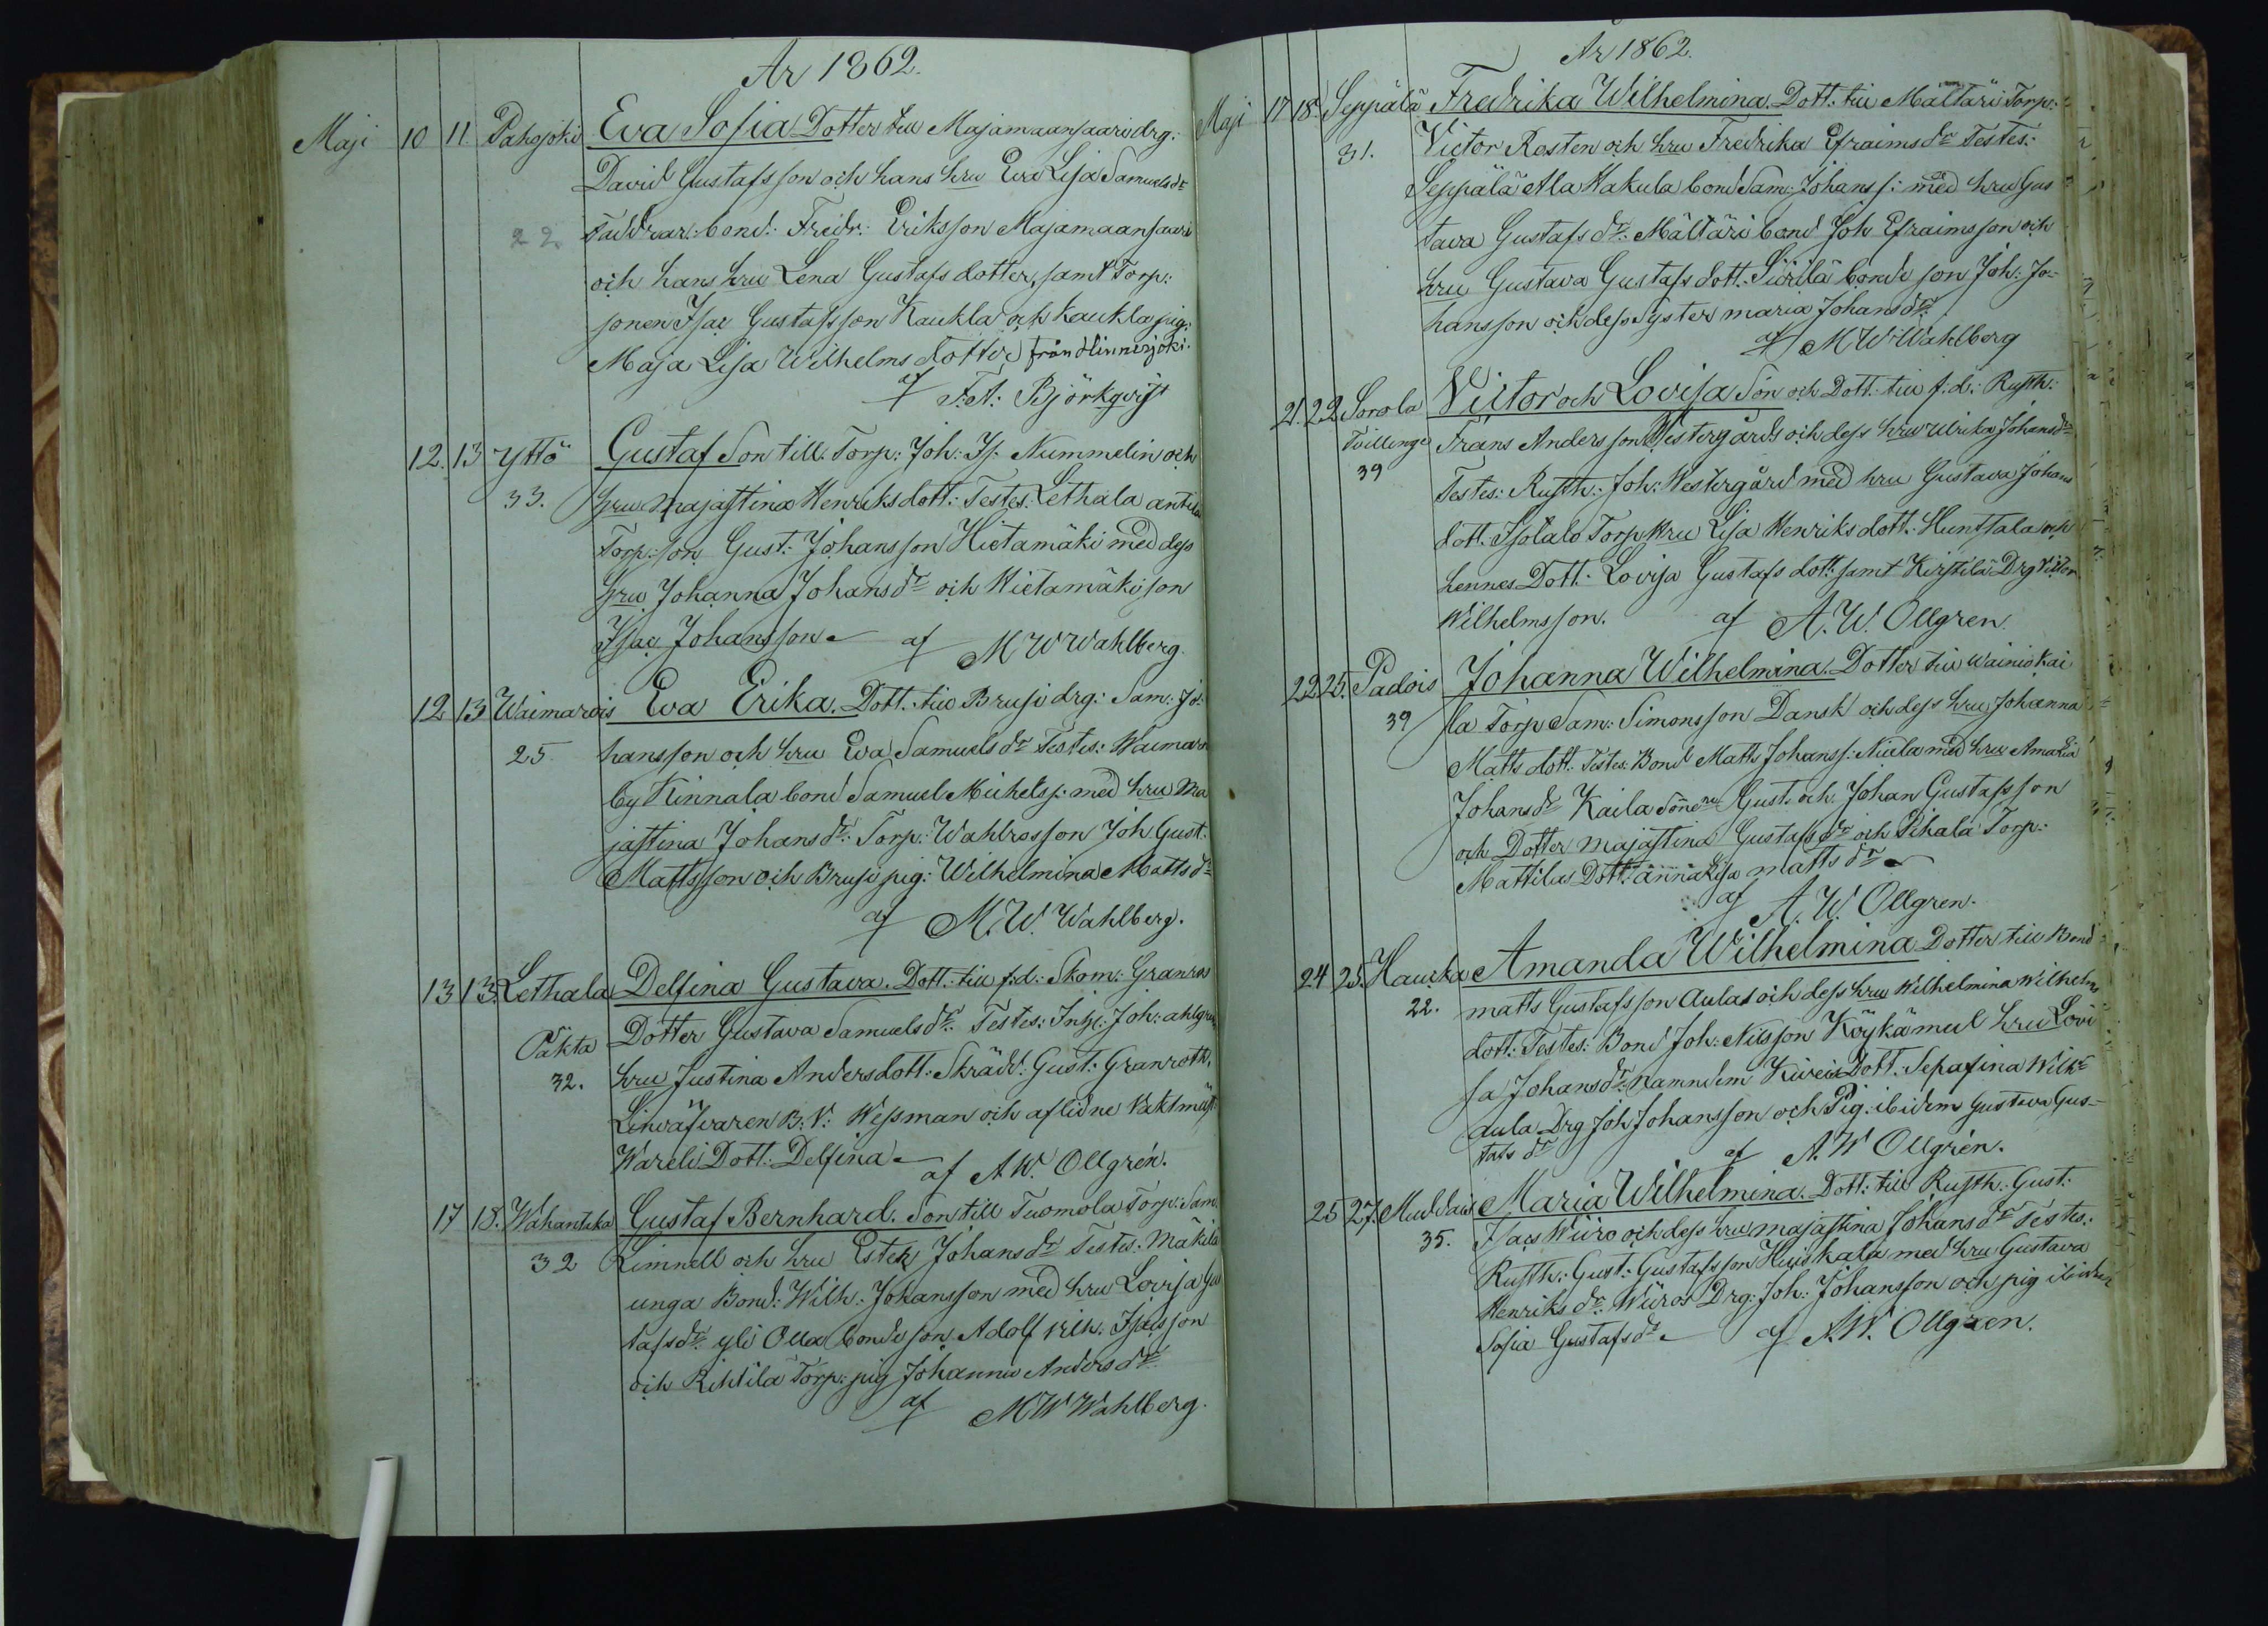 År 1862.
Maji 10 11. Pahojoki Eva Sofia Dotter till Majamaansaari drg:
David Gustafsson och hans hru Eva Lisa Samuelsdr
22. Faddrar: bond: Fredr: Eriksson Majamaansaari
och hans hru Lena Gustafsdotter, samt Torp:
sonen Isac Gustafsson Kaukla och Kaukla pig:
Maja Lisa Wilhelms dotter från Hinnerjoki.
af F.A. Björkqvist
12. 13 Yttö Gustaf Son till Torp: Joh: Is. Nummelin och
33. hru Majastina Henriksdott: Testes. Lethala anttila
Torp: son Gust: Johansson Hietamäki med dess
hru Johanna Johansdr och Hietamäki son
Isac Johansson. af M W Wahlberg.
12 13 Waimarois Eva Erika. Dott. till Brusi drg: Sam: Jo:
25 hansson och hru Eva Samuelsdr Testes: Waimaro
by Kinnala bond Samuel Michelss: med hru Ma
jastina Johansdr: Torp: Wahlrosson Joh Gust.
Mattsson och Brusi pig: Wilhelmina Mattsdr
af M.W. Wahlberg.
13 13. Lethala Delfina Gustava. Dott. till f:d: Skom: Granros
Päkta Dotter Gustava Samuelsdr: Testes: Inhs: Joh: ahlgren
32. hru Justina Andersdott: Skrädd: Gust: Granroth,
Linväfvaren B.V. Wessman och aflidne Vaktmäst:
Wareli Dott: Delfina. af A.W. Ollgrén.
17 18. Wahantaka Gustaf Bernhard. Son till Tuomola Torp: Sam.
32 Limnell och hru Ester Johansdr Testes. Mäkilä
unga Bond: Wilh: Johansson med hru Lovisa Gus
tafsdr: yli Olla bonde son Adolf Isacsson
och Rihtilä Torp: pig Johanna Andersdr
af M W Wahlberg.
År 1862.
Maji 17 18. Seppälä Fredrika Wilhelmina. Dott: till Mältäri Torp:
31. Victor Rosten och hru Fredrika Efraimsdr Testes:
Seppälä Ala Hakula bond Sam: Johanss: med hru Gus
tava Gustafsdr: Mältäri bond Joh Efraimsson och
hru Gustava Gustafsdott. Siirilä bonde son Joh: Jo-
hansson och dess Syster maria Johansdr
af M W Wahlberg
21. 22. Sorola Victor och Lovisa Son och Dott: till f:d: Rusth:
Tvillinge Frans Andersson Westergård och dess hru Ulrika Johansdr
39 Testes: Rusth: Joh: Westergård med hru Gustava Johans
dott. Isotalo Torp hru Lisa Henriksdott: Hunttala och
hennes Dott: Lovisa Gustafs dott: samt Kirstilä Drg Victor
Wilhelmsson. af A.W. Ollgren.
22 25. Padois Johanna Wilhelmina. Dotter till Wainio Kai
39 la Torp Sam: Simonsson Dansk och dess hru Johanna
Matts dott: Testes: Bond Matts Johanss: Niula med hru Amalia
Johansdr Kaila Sönerne Gust: och Johan Gustafsson
och Dotter Majastina Gustafsdr och Pihala Torp:
Mattilas Dott: Annalisa Mattsdr
af A.W. Ollgren.
24 25. Hauska Amanda Wilhelmina Dotter till Bond
22. matts Gustafsson Aulas och dess hru Wilhelmina Wilhelms
dott: Testes: Bond Joh: Nilsson Köykä mul hru Lovi
sa Johansdr: Dott: Sefafina Wilhdr
Aula Drg Joh Johansson och Pig: ibidem Gustava Gus-
tafs dr af A. W Ollgrén.
25 27. Muddais Maria Wilhelmina. Dott: till Rusth: Gust:
35. Isacs Wiiro och dess hru majastina Johansdr Testes:
Rusth: Gust: Gustafsson Huiskala med hru Gustava
Henriksdr: Wiiros Drg: Joh: Johansson och pig ibidem
Sofia Gustafsdr. af A.W. Ollgren.